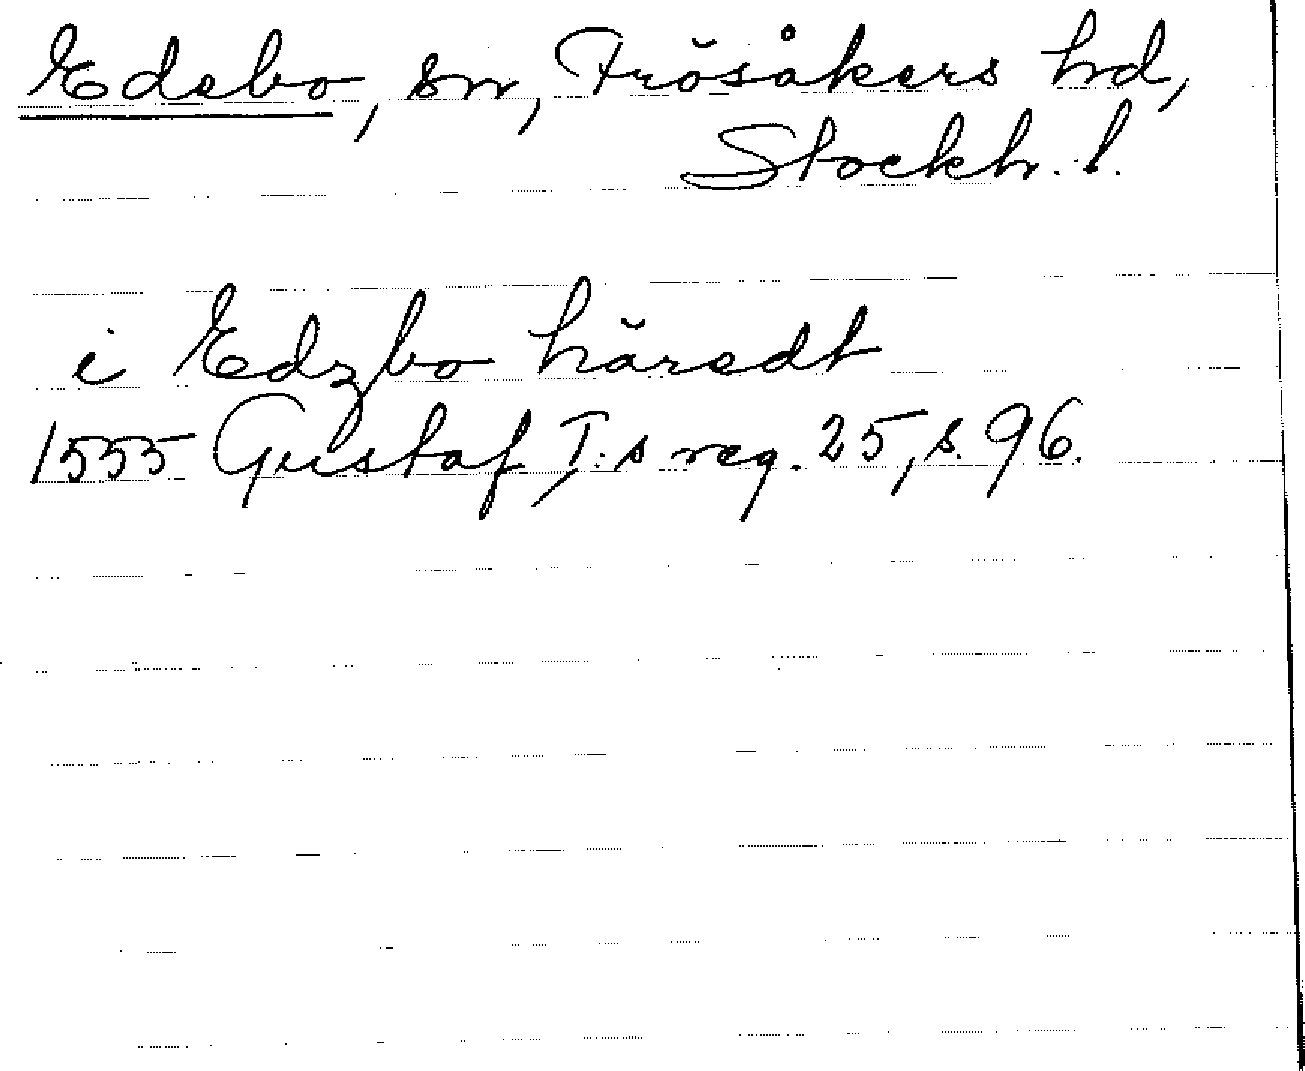 Edebo, sn, Frösåkers hd,
Stockh. l.
i Edzbo häredt
1555 Gustaf I:s reg. 25, s. 96.